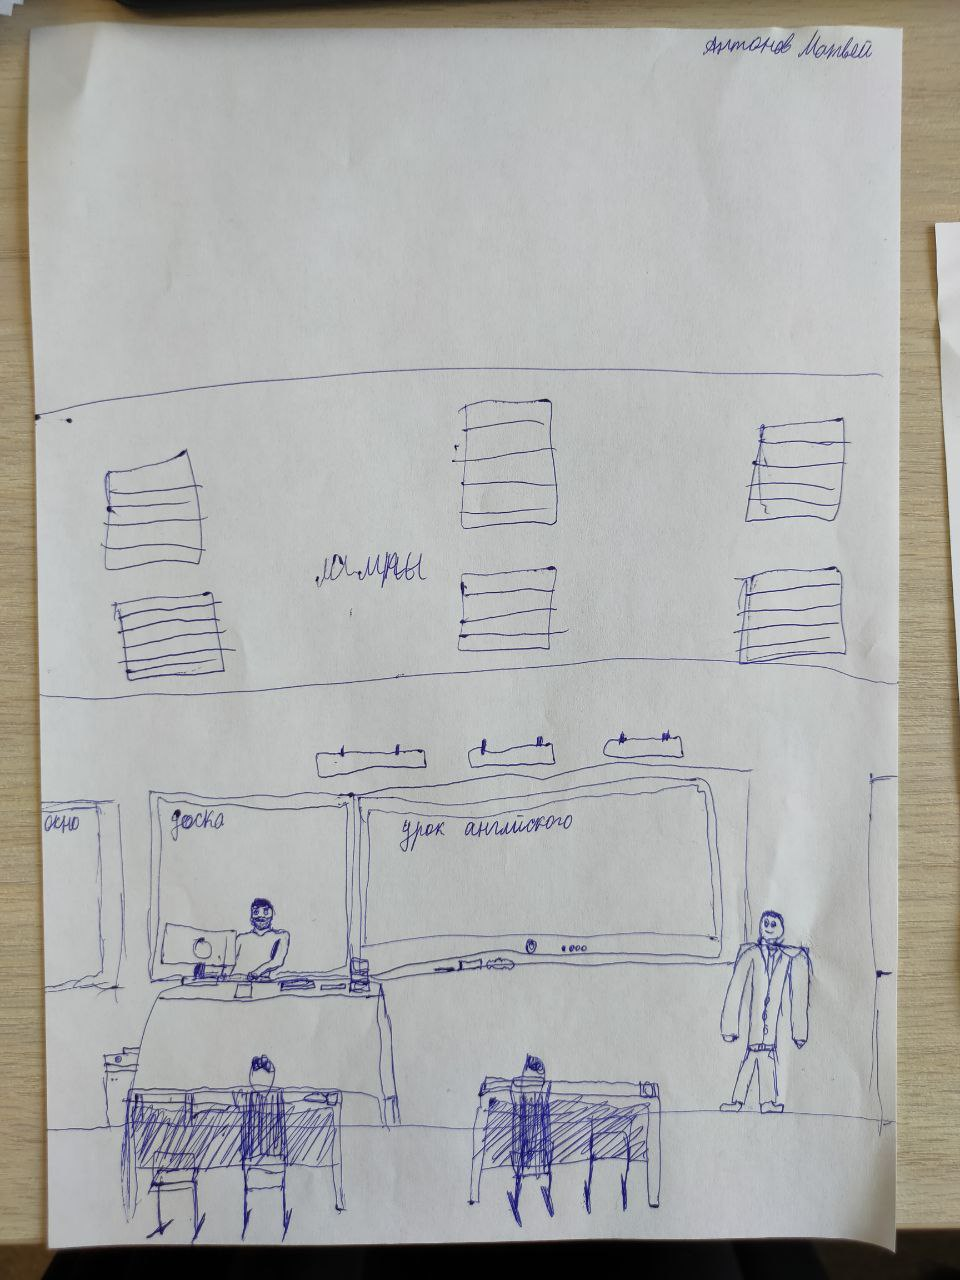 Антонов Матвей
лампы
окно
доска
урок англйского